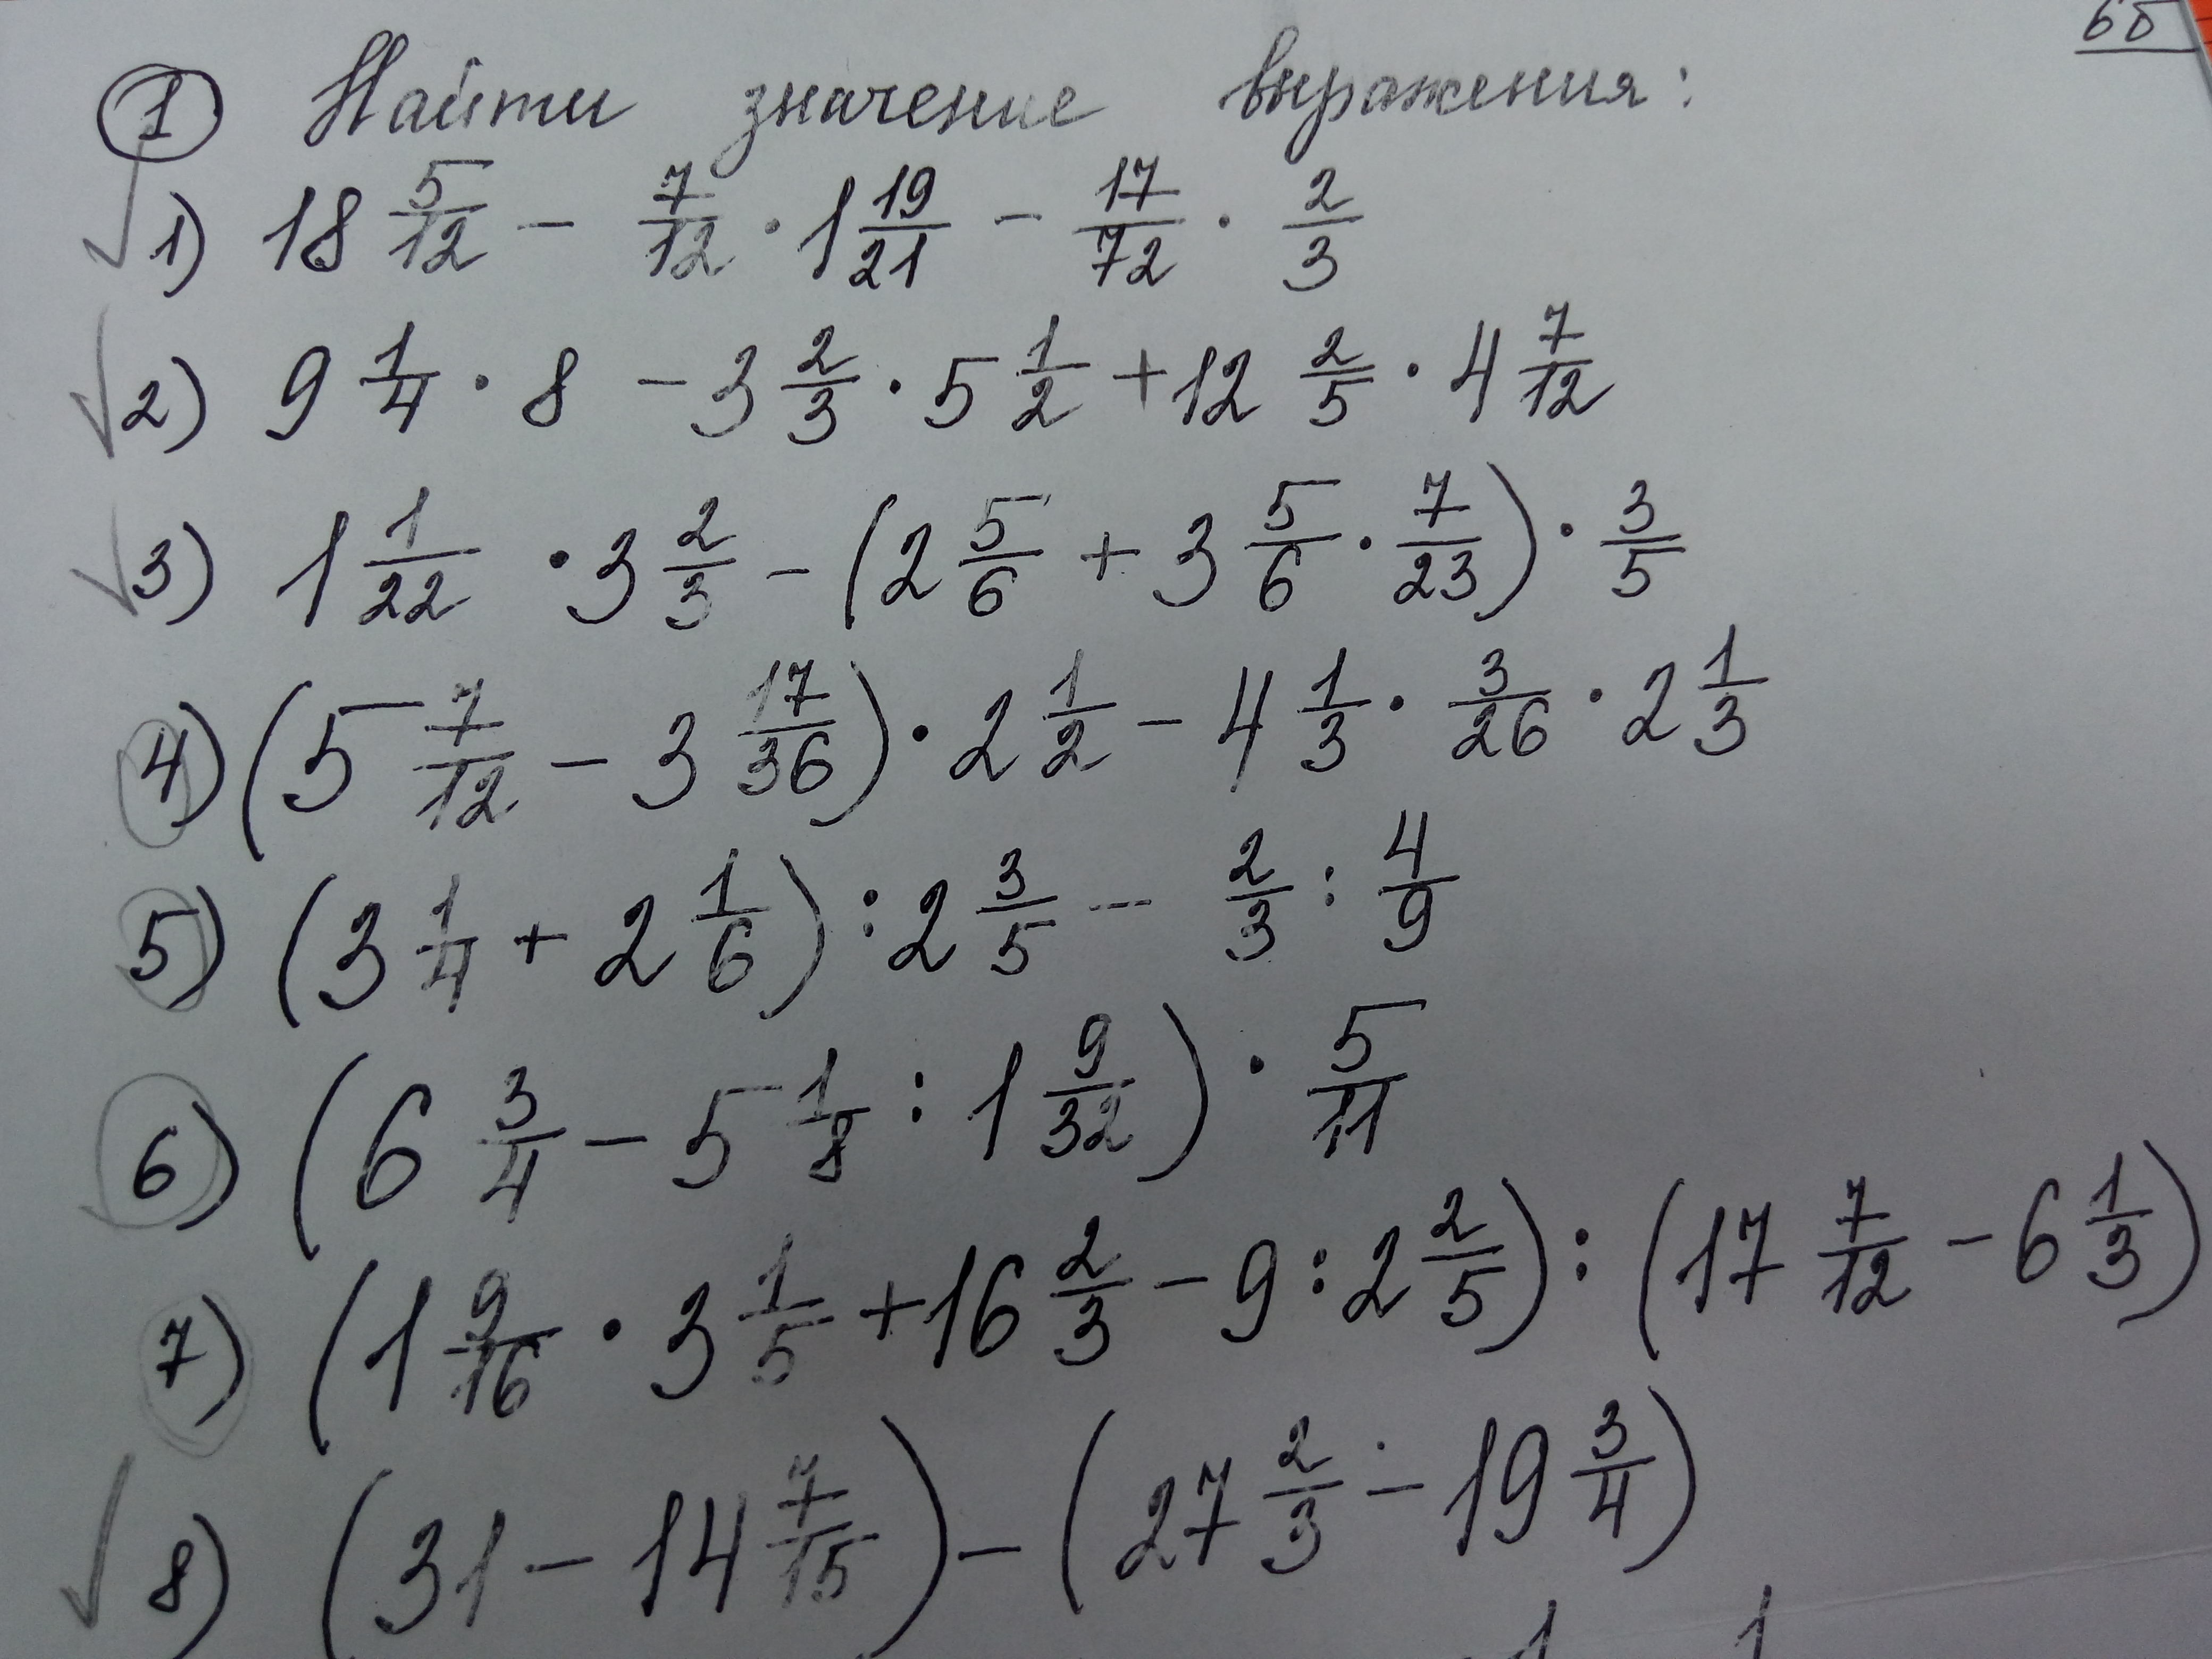 6б
1 Найти значение выражения:
1) 18 5/12 - 7/12 · 1 19/21 - 17/72 · 2/3
2) 9 1/4 · 8 - 3 2/3 · 5 1/2 + 12 2/5 · 4 7/12
3) 1 1/22 · 3 2/3 - (2 5/6 + 3 5/6 · 7/23) · 3/5
4) (5 7/12 - 3 17/36) · 2 1/2 - 4 1/3 · 3/26 · 2 1/3
5) (3 1/4 + 2 1/6) : 2 3/5 - 2/3 : 4/9
6) (6 3/4 - 5 1/8 : 1 9/32) · 5/11
7) (1 9/16 · 3 1/5 + 16 2/3 - 9 : 2 2/5) : (17 7/12 - 6 1/3)
8) (31 - 14 7/15) - (27 2/3 - 19 3/4)